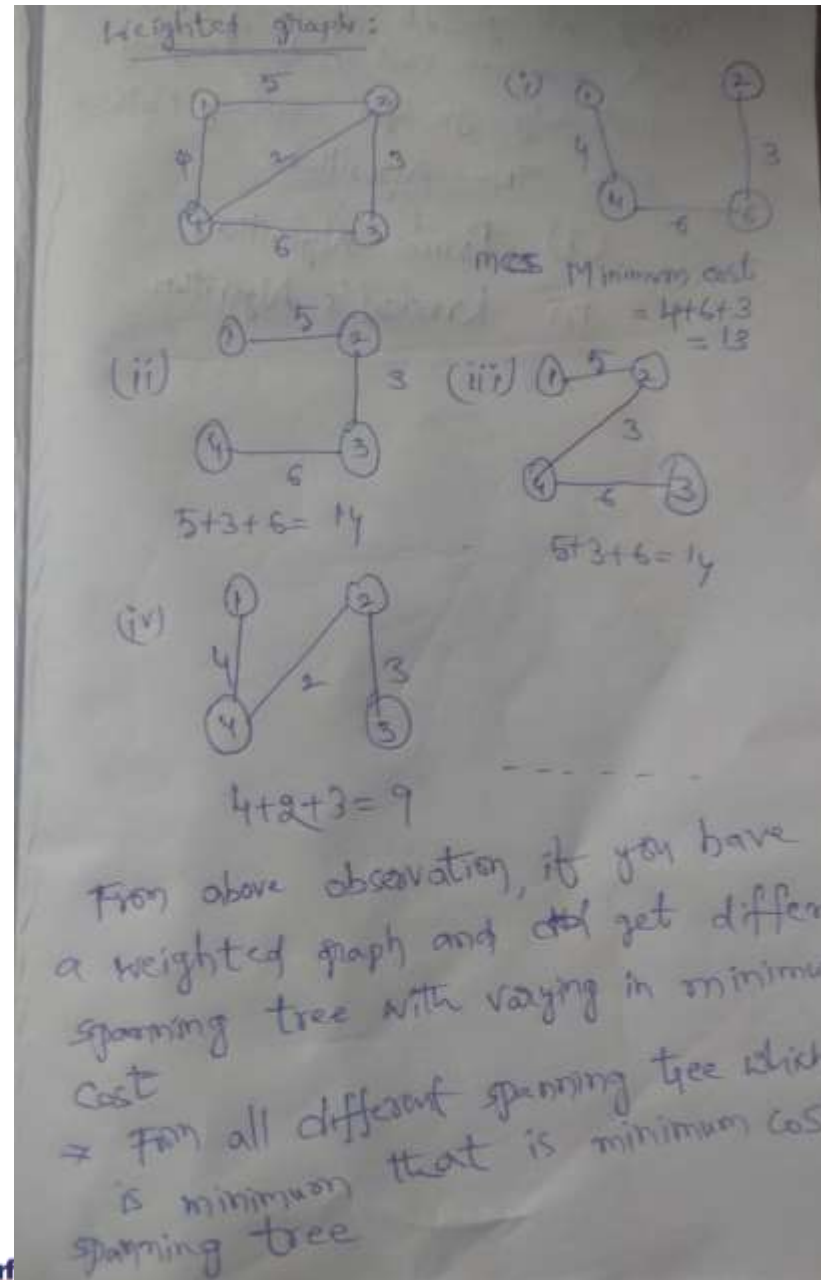 Weighted graph:
1 5 2
4 2 3
4 6 3
(i) 1 2
4 3
4 6
mes Minimum cost
= 4+6+3
= 13
(ii) 1 5 2
3
4 6 3
5+3+6= 14
(iii) 1 5 2
3
4 6 3
5+3+6= 14
(iv) 1 2
4 2 3
4 3
4+2+3= 9
From above observation, if you have
a weighted graph and get differen
spanning tree with varying in minimu
cost
⇒ From all different spanning tree which
is minimum that is minimum cos
spanning tree
rf